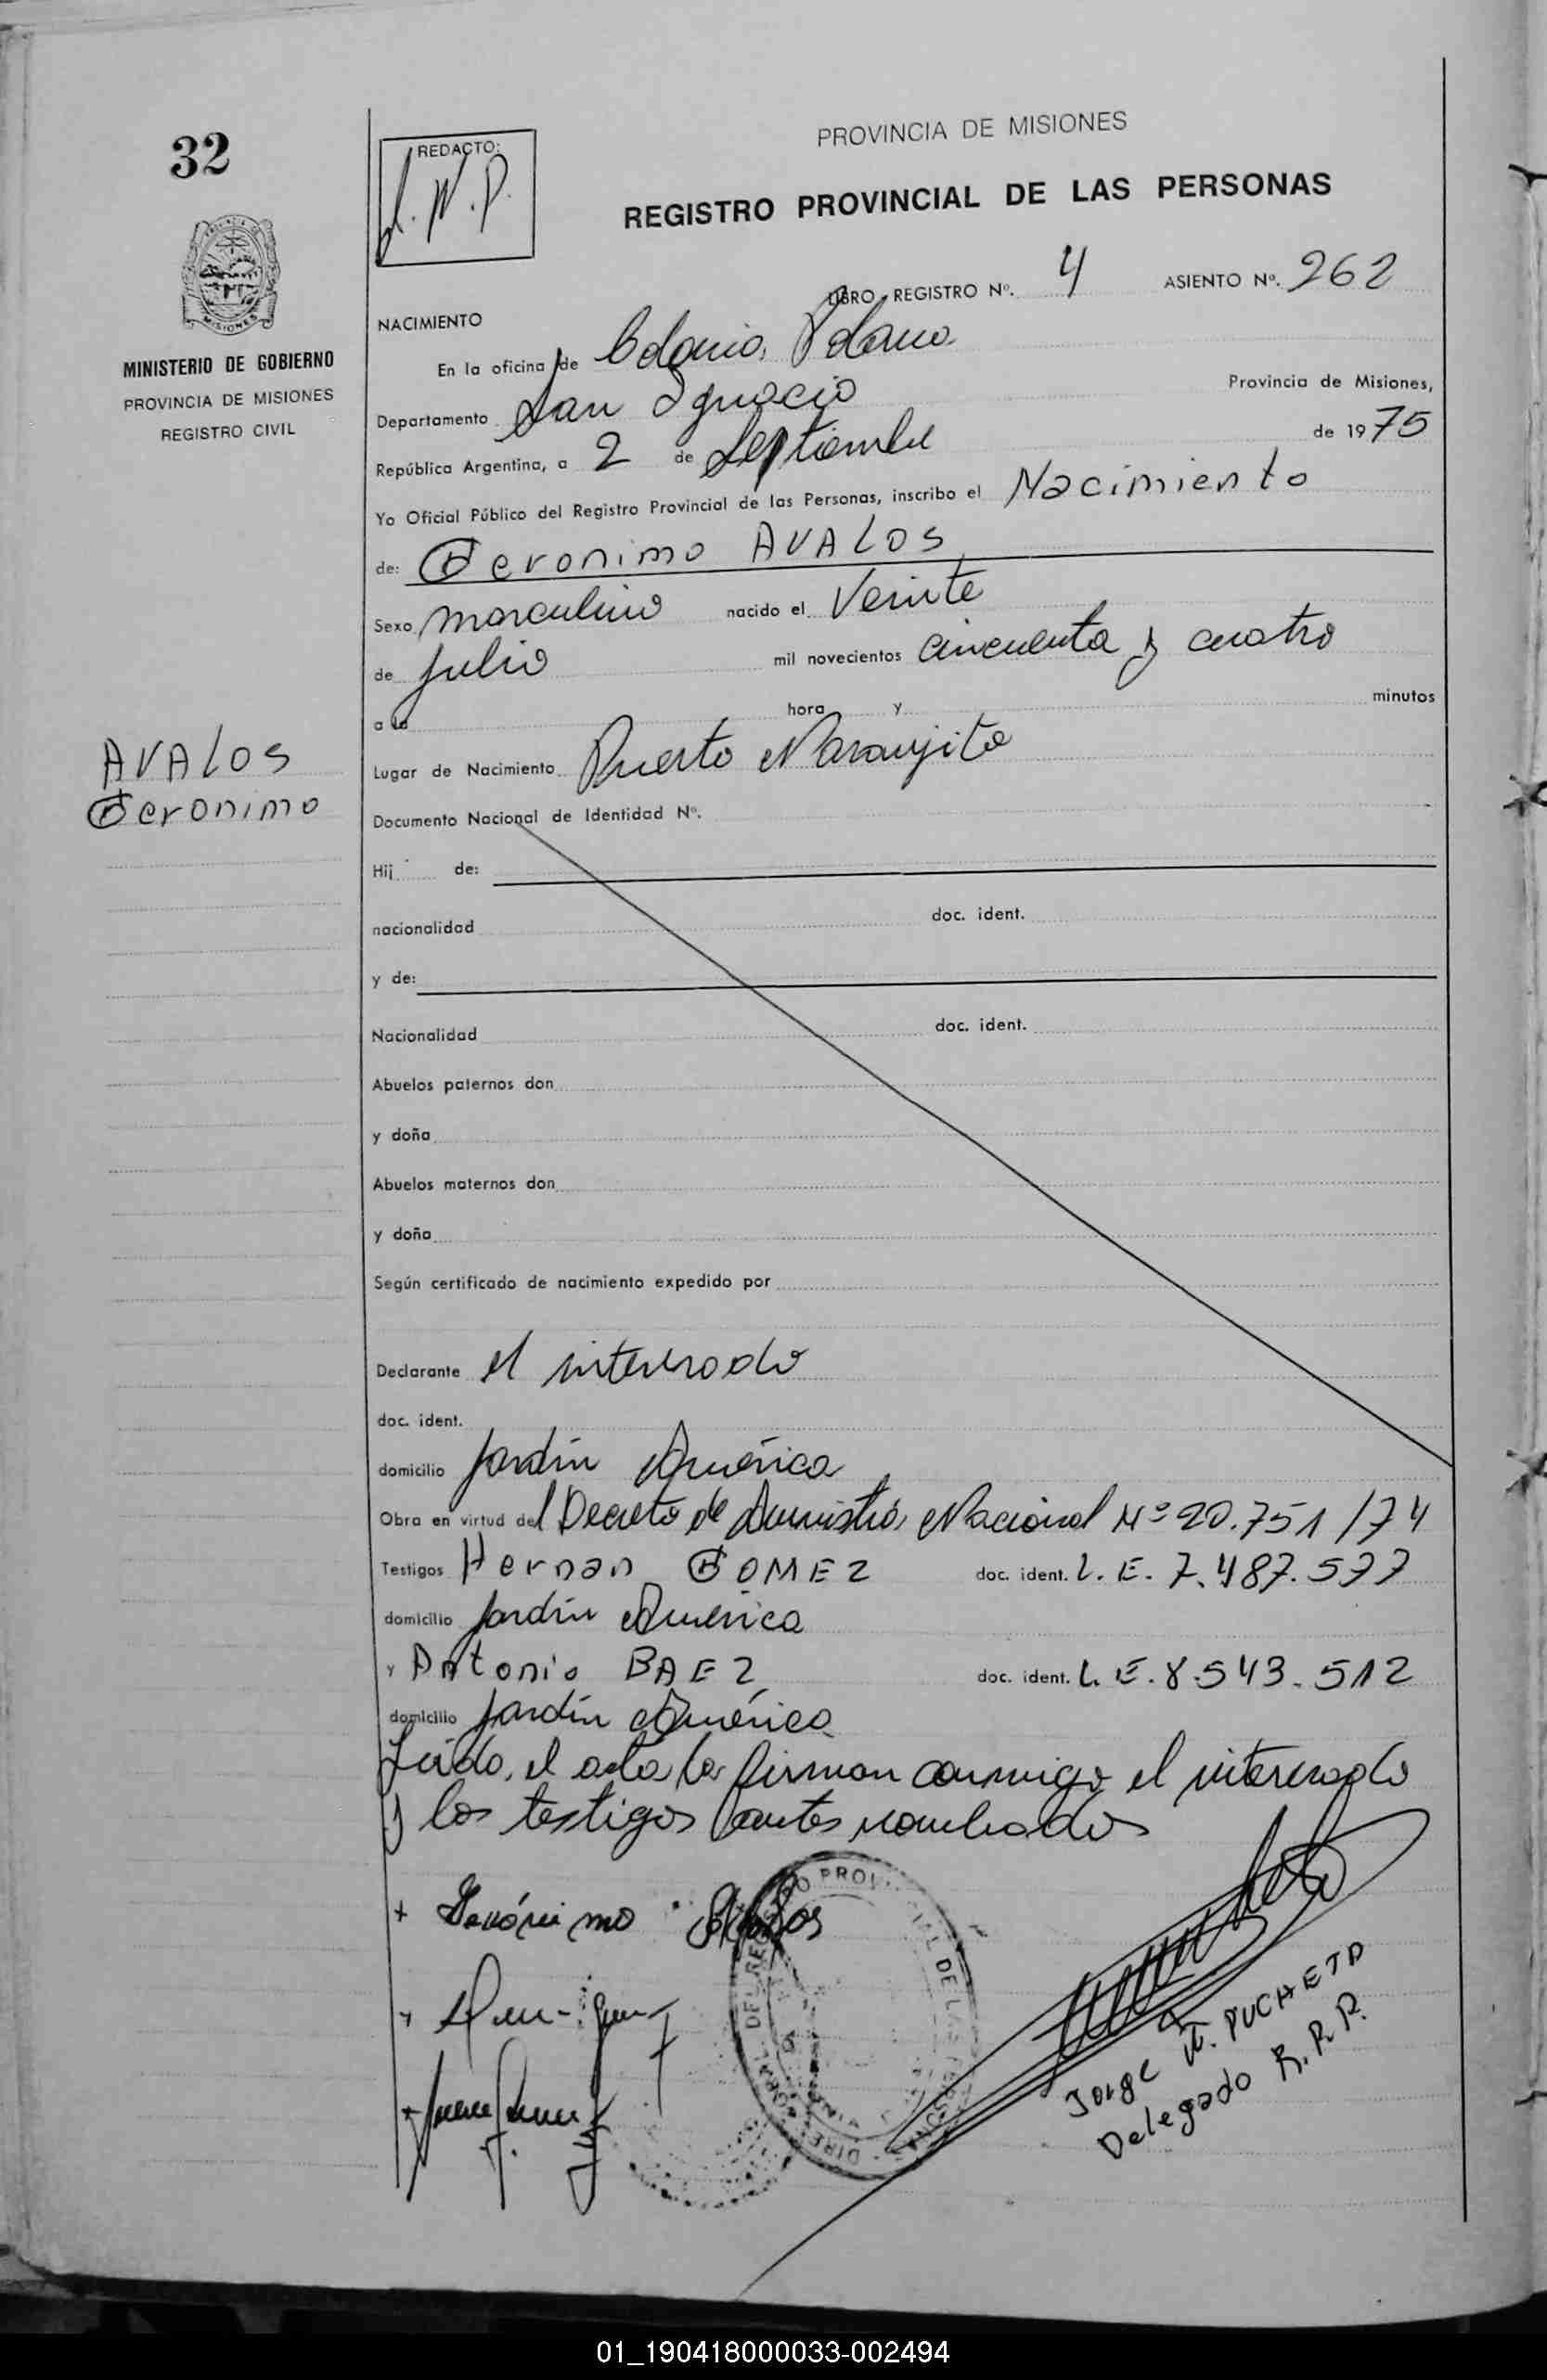 32
REDACTO:
PROVINCIA DE MISIONES
REGISTRO PROVINCIAL DE LAS PERSONAS
LIBRO REGISTRO Nº. 4 ASIENTO Nº. 262
MISIONES
MINISTERIO DE GOBIERNO
PROVINCIA DE MISIONES
REGISTRO CIVIL
NACIMIENTO
En la oficina de Colonia Polana
Departamento San Ignacio Provincia de Misiones,
República Argentina, a 2 de Septiembre de 1975
Yo Oficial Público del Registro Provincial de las Personas, inscribo el Nacimiento
de: Geronimo AVALOS
Sexo masculino nacido el Veinte
de Julio mil novecientos cincuenta y cuatro
a la hora y minutos
AVALOS
Geronimo
Lugar de Nacimiento Puerto Naranjito
Documento Nacional de Identidad Nº.
Hij de:
nacionalidad doc. ident.
y de:
Nacionalidad doc. ident.
Abuelos paternos don
y doña
Abuelos maternos don
y doña
Según certificado de nacimiento expedido por
Declarante el interesado
doc. ident.
domicilio Jardín América
Obra en virtud del Decreto de Nacional Nº 20.751/74
Testigos Hernan GOMEZ doc. ident. L. E. 7.487.577
domicilio Jardín América
y Antonio BAEZ doc. ident. L. E. 8.543.512
domicilio Jardín América
Leído, el acta la firman conmigo el interesado
y los testigos antes nombrados
+ Gerónimo Avalos
Jorge W. PUCHETA
Delegado R. P. P.
01_190418000033-002494